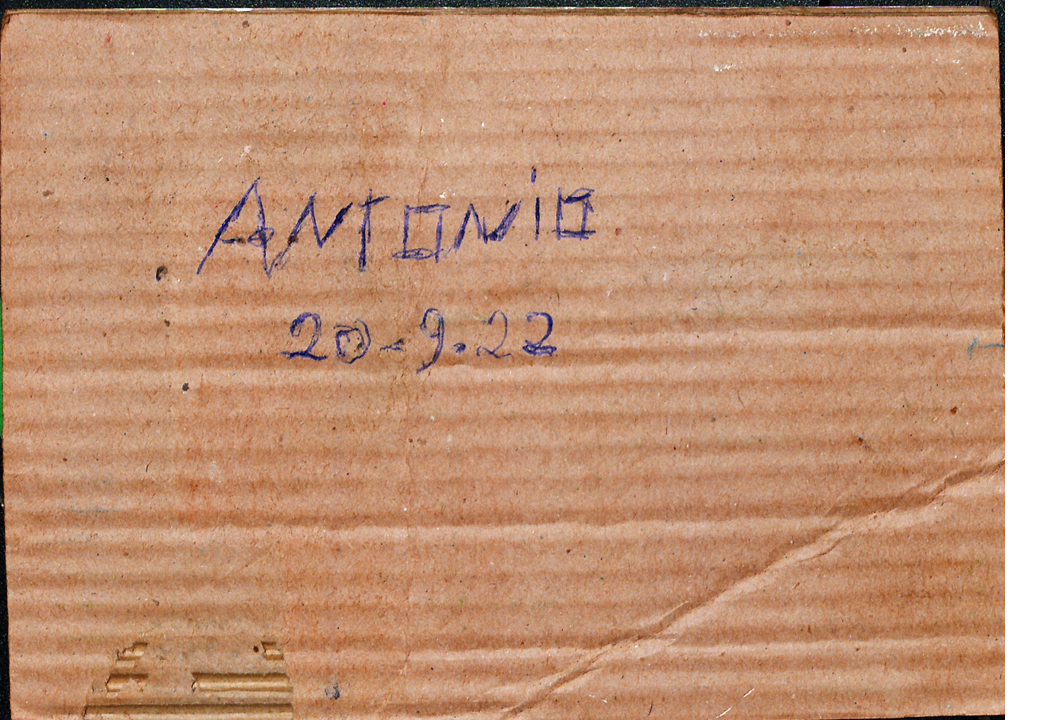 ANTONiO
20-9.22